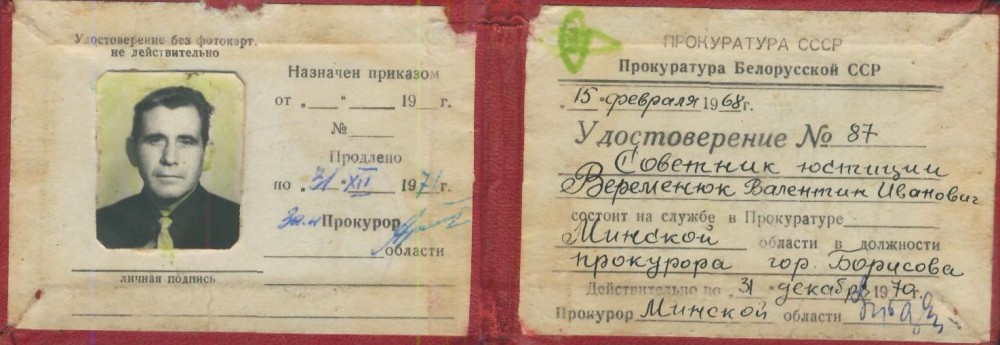 Удостоверение без фотокарт.
не действительно
Назначен приказом
от „___“ ______ 19__г.
№____
Продлено
по „31“ XII 197 г.
Зам Прокурор
области
личная подпись
ПРОКУРАТУРА СССР
Прокуратура Белорусской ССР
„15“ февраля 1968г.
Удостоверение № 87
Советник юстиции
Веременюк Валентин Иванович
состоит на службе в Прокуратуре
Минской области в должности
прокурора гор. Борисова
Действительно по „31“ декабря 1970г.
Прокурор Минской области